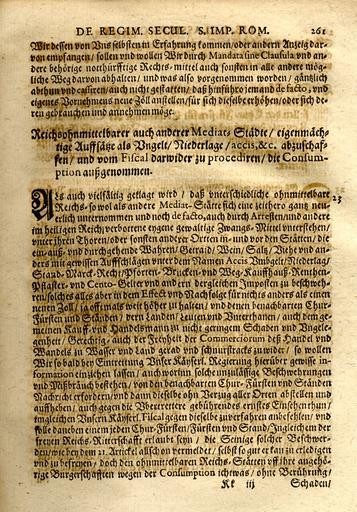 DE REGIM. SECUL. S. IMP. ROM. 261
Wir dessen von Uns selbsten in Erfahrung kommen/oder andern Anzeig dar-
von empfangen/ sollen und wollen Wir durch Mandata sine Clausula und an-
dere behörige nothdürfftige Rechts-mittel auch sonsten in alle andere mög-
liche Weg darvon abhalten/ und was also vorgenommen worden/ gäntzlich
abthun und cassiren/ auch nicht gestatten/ daß hinführo jemand de facto, und
eigenes Vornehmens neue Zöll anstellen/ für sich dieselbe erhöhen/ oder sich de-
ren gebrauchen und annehmen möge.
Reichsohnmittelbarer auch anderer Mediate Städte/ eigenmäch-
tige Auffsätze als Ungelt/ Niederlage/ accis, &c. abzuschaf-
fen/ und vom Fiscal darwider zu procediren/ die Consum-
ption außgenommen.
Als auch vielfältig geklagt wird/ daß unterschiedliche ohnmittelbare
Reichs- so wol als andere Mediat-Stätte sich eine zeithero gantz neu-
erlich unternommen und noch de facto, auch durch Arresten/ und andere
im heiligen Reich/ verbottene eygene gewaltige Zwangs-Mittel unterstehen/
unter ihren Thoren/ oder sonsten anderer Orten in- und vor den Stätten/ die
ein-auß- und durchgehende Wahren/ Getraid/ Wein/ Saltz/ Viehe und an-
ders mit gewissen Auffschlägen unter dem Namen Accis Umbgelt/ Niederlag/
Stand- Marck-Recht/ Pforten- Brucken- und Weg-Kauffhauß- Renthen-
Pflaster- und Cento-Gelter und andern dergleichen Imposten zu beschweh-
ren/ solches alles aber in dem Effect und Nachfolge für nichts anders als einen
neuen Zoll/ ja offtmals weit höher zu halten/ und denen benachbarten Chur-
Fürsten und Ständen/ dern Landen/ Leuten und Unterthanen/ auch dem ge-
meinen Kauff- und Handelsmann zu nicht geringem Schaden und Ungele-
genheit/ Gerechtig/ auch der Freyheit der Commerciorum deß Handel und
Wandels zu Wasser und Land gerad und schnurstracks zuwider/ so wollen
Wir so bald bey Eintrettung Unser Käyserl. Regierung hierüber gewisse in-
formation einziehen lassen/ auch worinn solche unzulässige Beschwehrungen
und Mißbräuch bestehen/ von den benachbarten Chur-Fürsten und Ständen
Nachricht erfordern/ und dann dieselbe ohn Verzug aller Orten abstellen und
auffheben/ auch gegen die Ubertrettere gebührendes ernstes Einsehen thun/
imgleichen Unsern Käyserl. Fiscal gegen dieselbe zu verfahren anbefehlen/ und
solle daneben einem jeden Chur-Fürsten/ Fürsten und Stand/ Ingleichem der
freyen Reichs-Ritterschafft erlaubt seyn/ die Seinige solcher Beschwer-
den/ wie bey dem 21. Artickel allschon vermeldet/ selbst so gut er kan zu erledigen
und zu befreyen/ doch den ohnmittelbaren Reichs-Stätten uff ihre angehö-
rige Burgerschafften wegen der Consumption ichtwas/ ohne Berührung/
Kk iij Schaden/
23